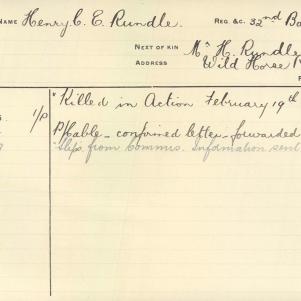 NAME Henry C. E. Rundle. REG &C. 32nd Ba
NEXT OF KIN Mr H. Rundle
ADDRESS Wild Horse
"Killed in Action February 19th
1/P P/Cable - confirmed letter - forwarded
Slip from Commrs. Information sent